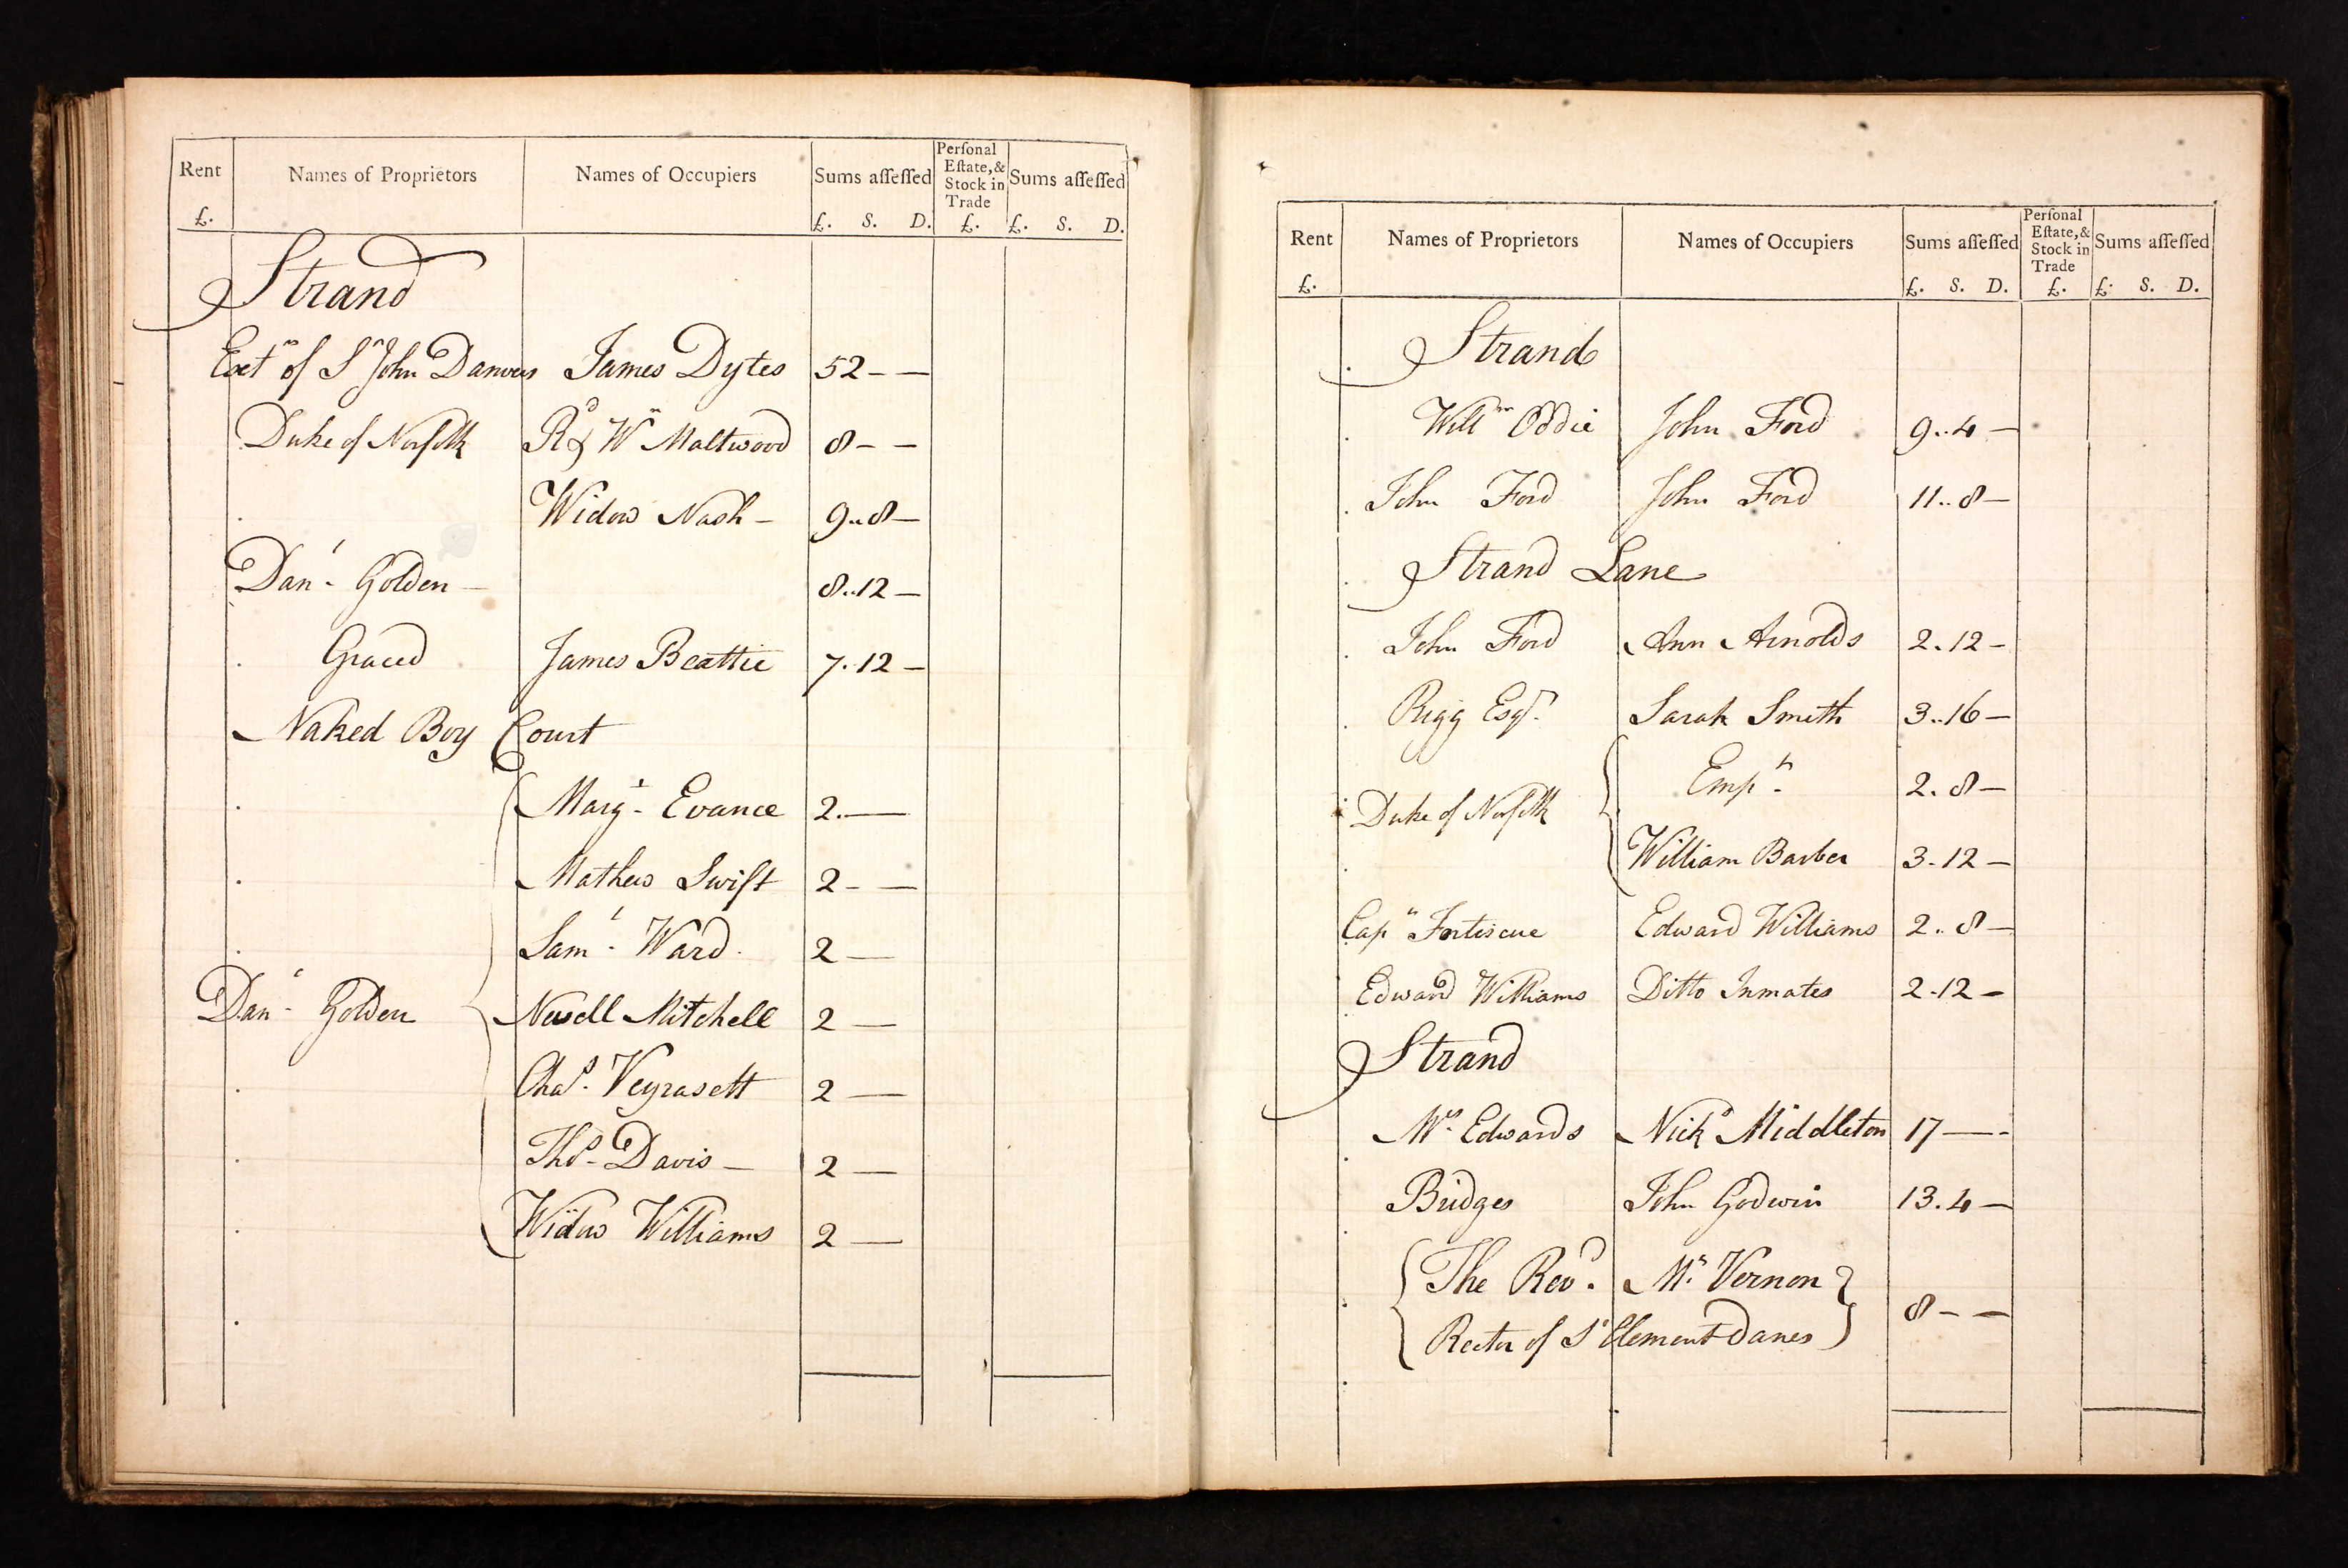 Rent Names of Proprietors Names of Occupiers Sums aſſeſſed Perſonal Eſtate, & Stock in Trade Sums aſſeſſed
£. £. S. D. £. £. S. D.
Strand
Exrs of Sr John Danvers James Dytes 52 – –
Duke of Norfolk Rd & Wm Maltwood 8 – –
Widow Nash – 9..8 –
Danl Golden – 8..12 –
Graced James Beattie 7.12 –
Naked Boy Court
Margt Evance 2. –
Mathew Swift 2 – –
Saml Ward 2 –
Danl Golden Newell Mitchell 2 –
Chas. Veyrasett 2 –
Thos Davis – 2 –
Widow Williams 2 –
Rent Names of Proprietors Names of Occupiers Sums aſſeſſed Perſonal Eſtate, & Stock in Trade Sums aſſeſſed
£. £. S. D. £. £. S. D.
Strand
Willm Oddie John Ford 9..4 –
John Ford John Ford 11..8 –
Strand Lane
John Ford Ann Arnolds 2.12 –
Rigg Esqr. Sarah Smith 3..16 –
Empty 2.8 –
Duke of Norfolk
William Barber 3.12 –
Capn Fortiscue Edward Williams 2..8 –
Edward Williams Ditto Inmates 2.12 –
Strand
Mrs. Edwards Nichs Middleton 17 – –
Bridges John Godwin 13.4 –
The Revd. Mr. Vernon
8 – –
Rector of St Clement Danes